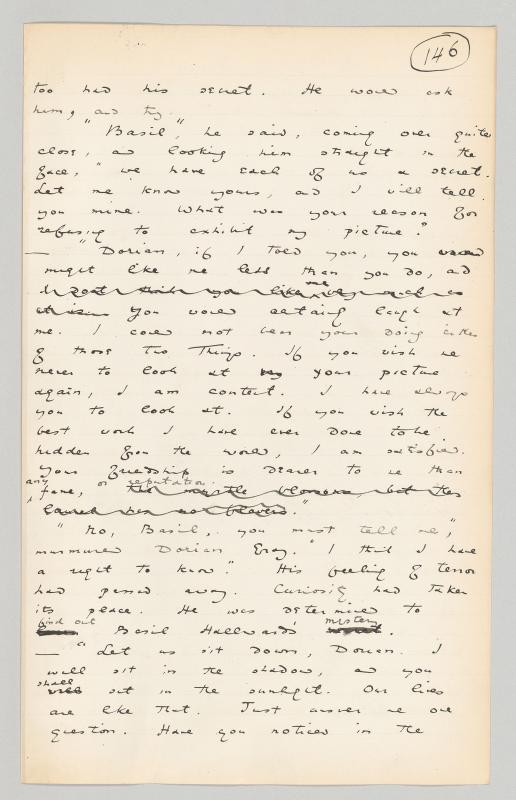 146
too had his secret. He would ask
him, and try.
"Basil," he said, coming over quite
close, and looking him straight in the
face, "we have each of us a secret.
Let me know yours, and I will tell
you mine. What was your reason for
refusing to exhibit my picture?"
— "Dorian, if I told you, you
might like me less than you do, and
I don't think you like me very much as
it is. You would certainly laugh at
me. I could not bear your doing either
of those two things. If you wish me
never to look at my your picture
again, I am content. I have always
you to look at. If you wish the
best work I have ever done to be
hidden from the world, I am satisfied.
Your friendship is dearer to me than
any fame, or reputation.
laurel has no flowers."
"No, Basil, you must tell me,"
murmured Dorian Gray. "I think I have
a right to know." His feeling of terror
had passed away. Curiosity had taken
its place. He was determined to
find out Basil Hallward's mystery.
— "Let us sit down, Dorian. I
will sit in the shadow, and you
shall will sit in the sunlight. Our lives
are like that. Just answer me one
question. Have you noticed in the